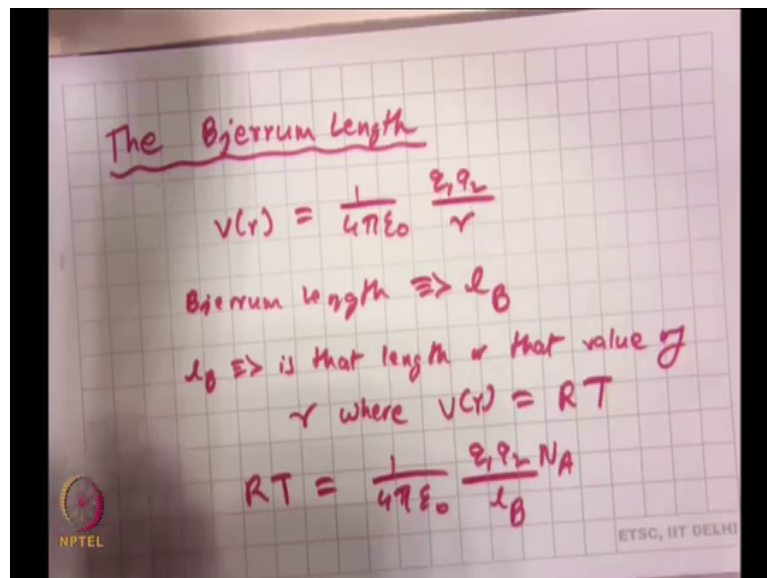 The Bjerrum Length
V(r) = 1/4πε₀ q₁q₂/r
Bjerrum length ⇒ l_B
l_B ⇒ is that length or that value of
r where V(r) = RT
RT = 1/4πε₀ q₁q₂ N_A/l_B
NPTEL
ETSC, IIT DELHI